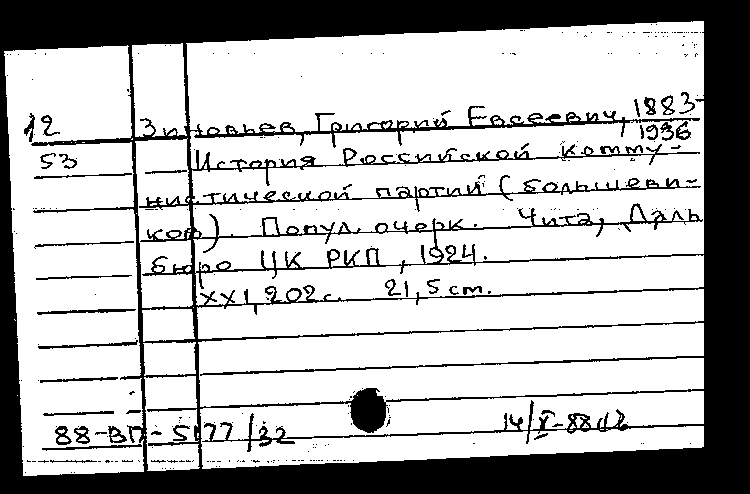 12 Зиновьев, Григорий Евсеевич, 1883-
1936
53 История Российской комму-
нистической партии (большеви-
ков). Попул. очерк. Чита, Даль
бюро ЦК РКП, 1924.
XXI, 202 с. 21,5 cm.
88-ВП-5177/32 14/X-88